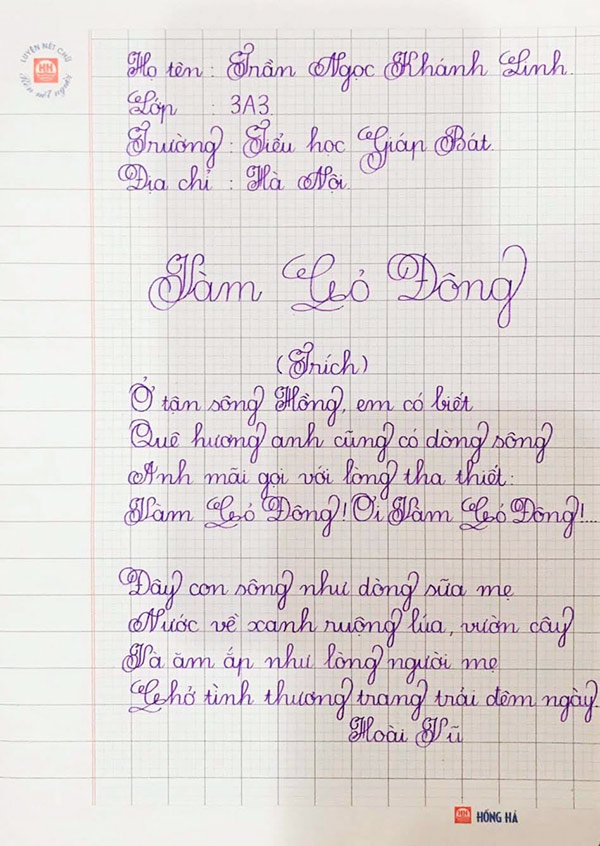 LUYỆN NÉT CHỮ
Rèn nết người
Họ tên : Trần Ngọc Khánh Linh.
Lớp : 3A3.
Trường : Tiểu học Giáp Bát.
Địa chỉ : Hà Nội.
Vàm Cỏ Đông
(Trích)
Ở tận sông Hồng, em có biết
Quê hương anh cũng có dòng sông
Anh mãi gọi với lòng tha thiết:
Vàm Cỏ Đông! Ơi Vàm Cỏ Đông!...
Đây con sông như dòng sữa mẹ
Nước về xanh ruộng lúa, vườn cây
Và ăm ắp như lòng người mẹ
Chở tình thương trang trải đêm ngày.
Hoài Vũ
HỒNG HÀ